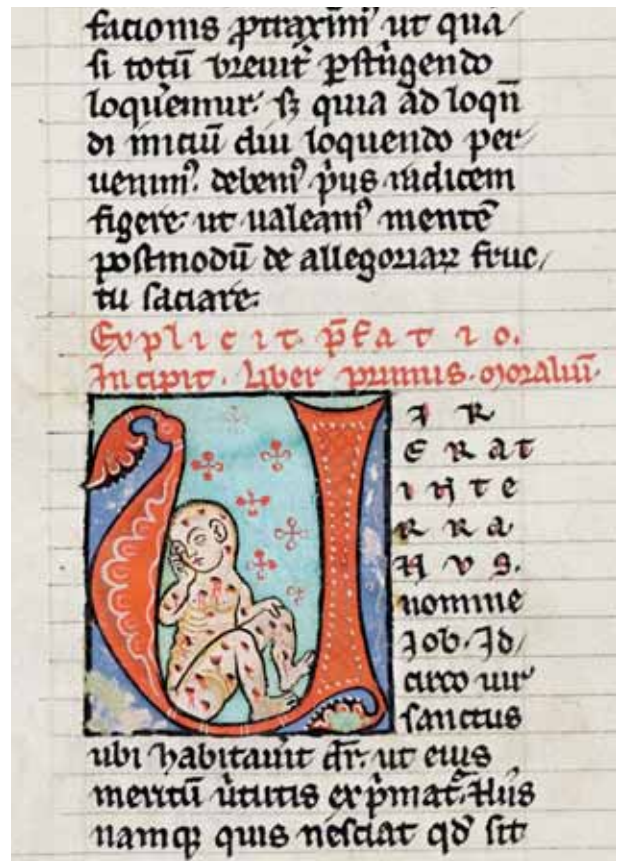 facionis ꝑtraxim᷒ ut qua/
si totū breuit᷑ ꝑstrīgendo
loquemur. sꝫ quia ad loqn̄
di iniciū diu loquendo per/
uenim᷒. debem᷒ p᷑us indicem
figere. ut ualeam᷒ mentē
postmodū de allegoriaꝝ fruc/
tu saciare.
Explicit. p̄fatio.
Incipit. Liber primus. moraliū.
U
IR
ERAT
INTE
RRA
HVS.
nomine
Job. Id/
circo uir
sanctus
ubi habitauit dr̄. ut eius
meritū u᷑tutis exp᷑mat᷑. Hus
namqꝫ quis nesciat qd̛ sit